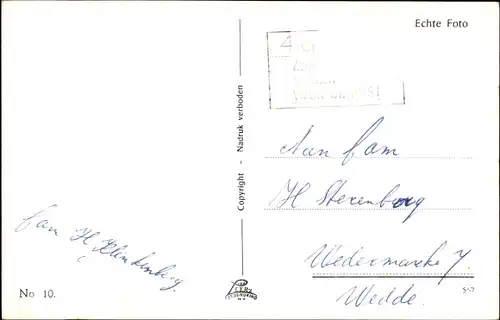 Echte Foto
Copyright - Nadruk verboden
Aan fam
H Sterenborg
Wedermarke 7.
Wedde.
fam H Klinkenberg.
No 10.